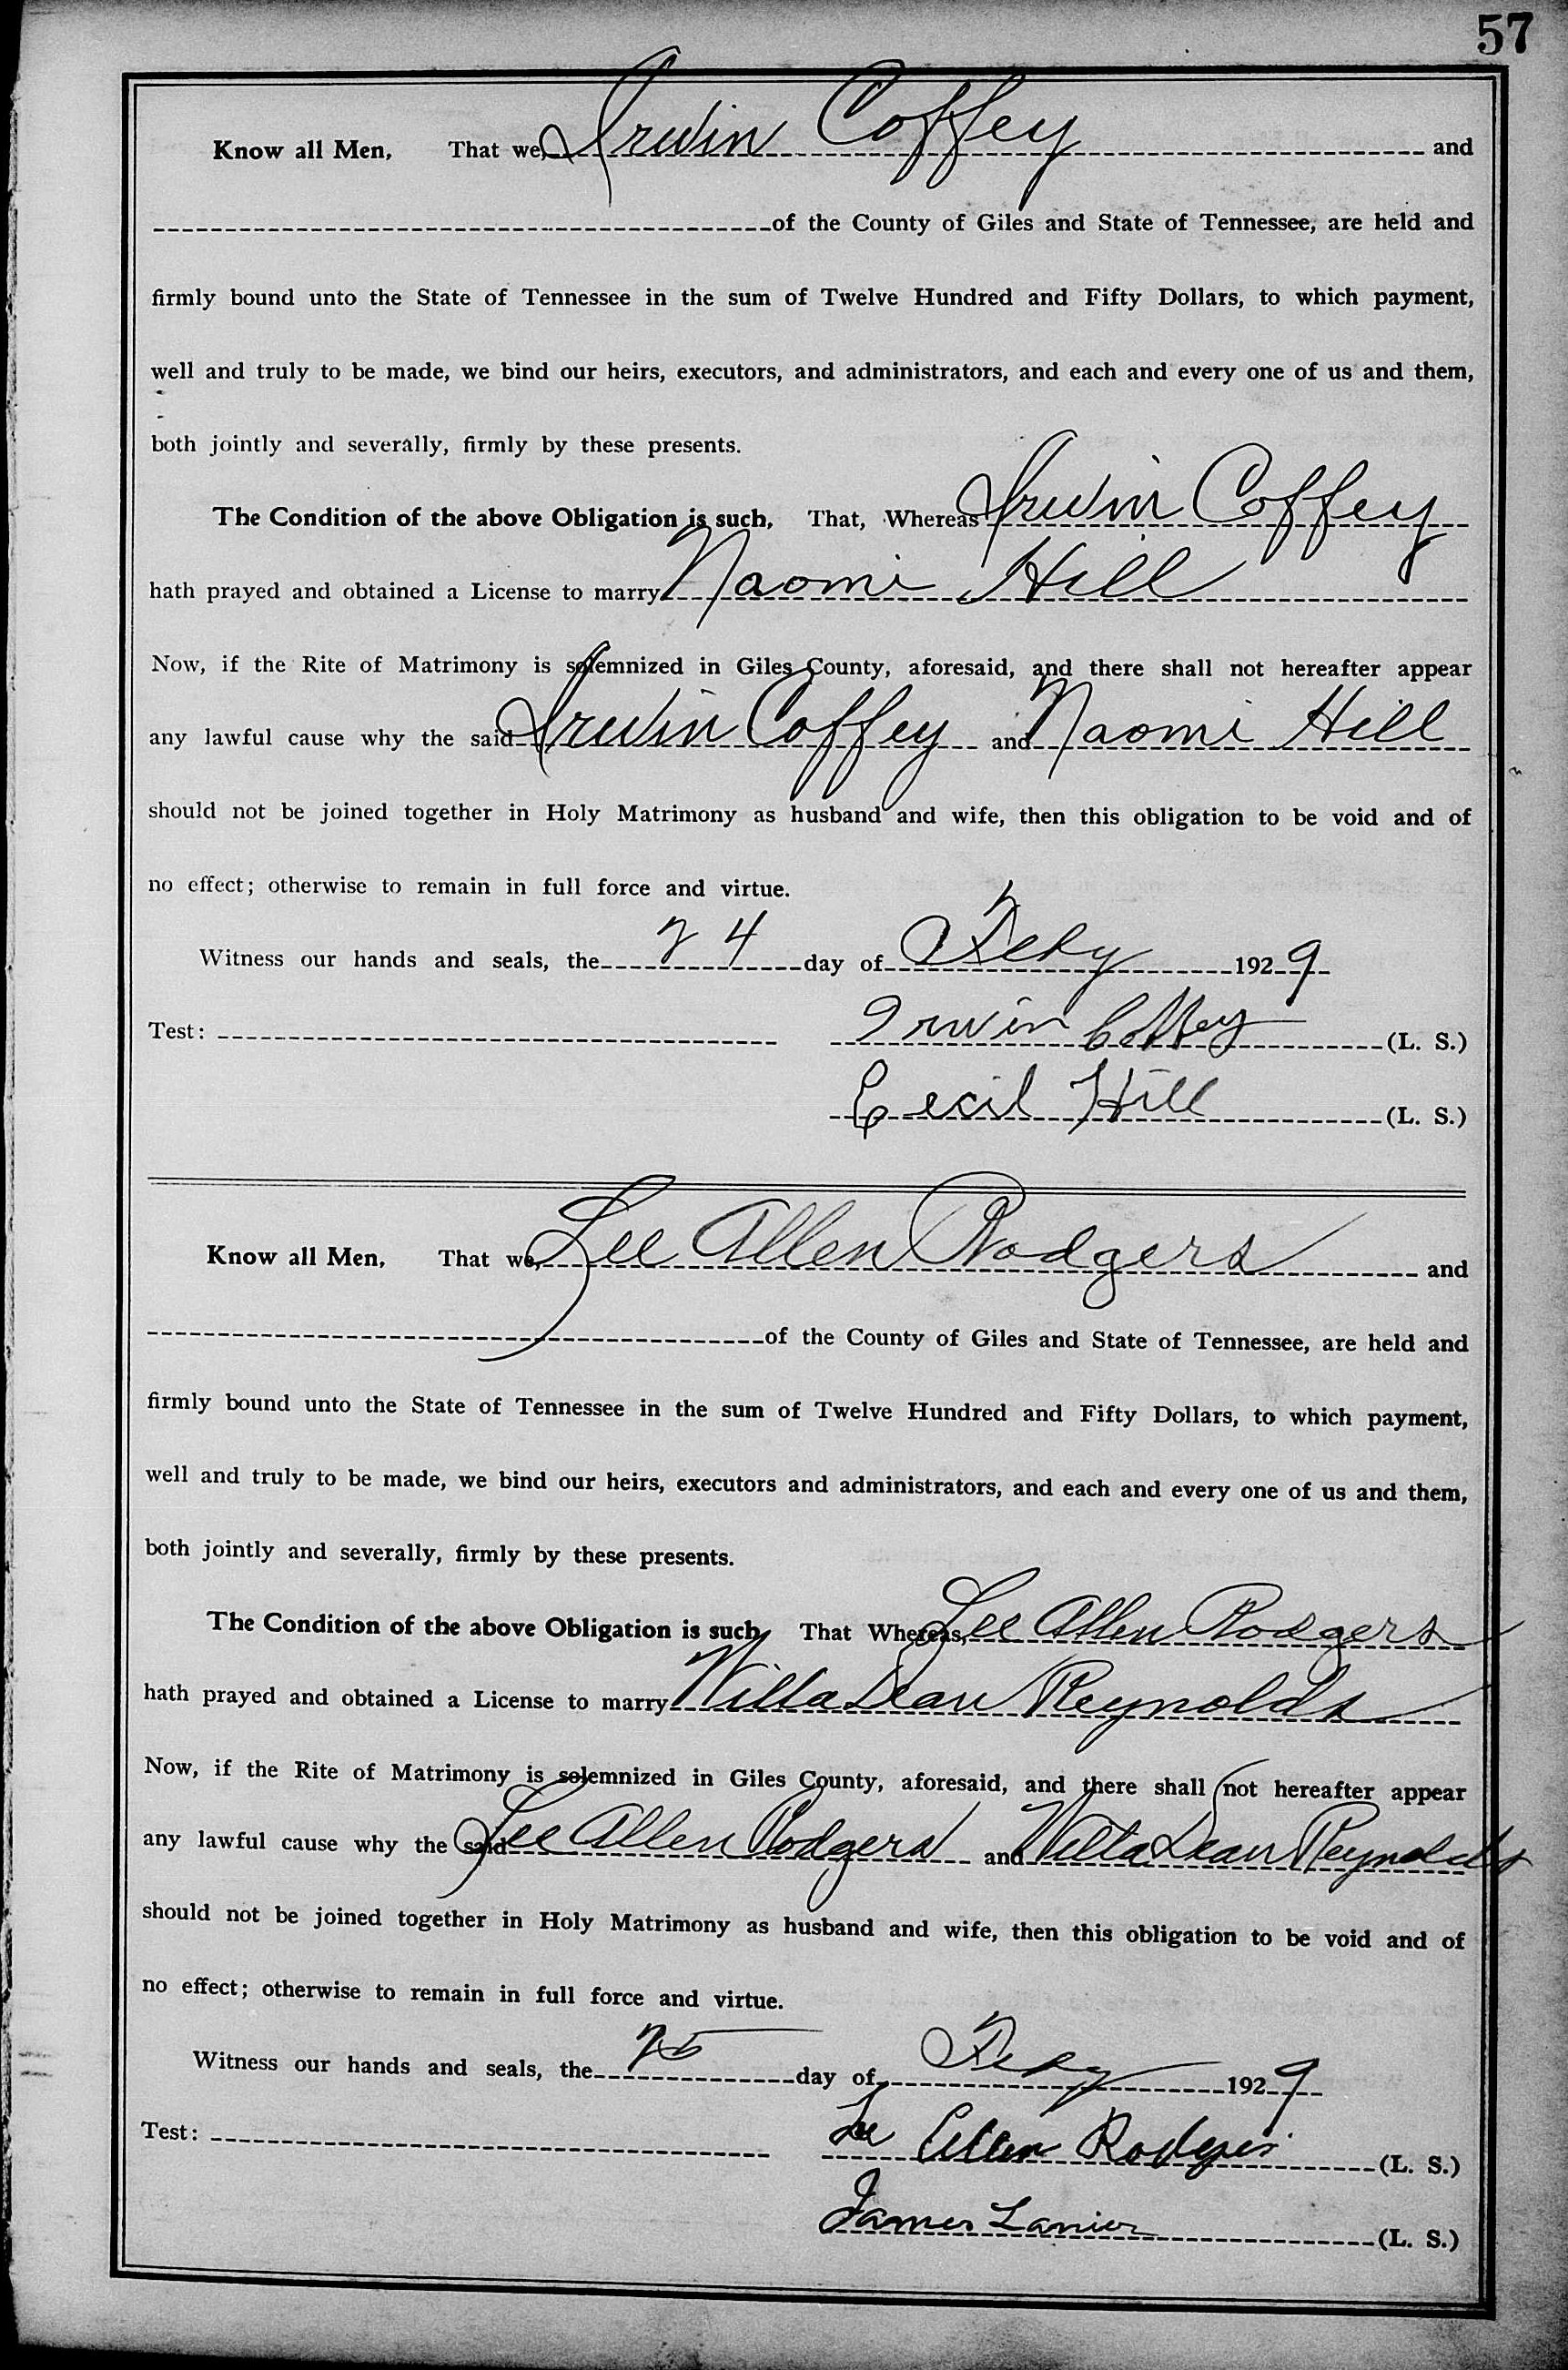 57
Know all Men, That we, Irwin Coffey and
of the County of Giles and State of Tennessee, are held and
firmly bound unto the State of Tennessee in the sum of Twelve Hundred and Fifty Dollars, to which payment,
well and truly to be made, we bind our heirs, executors, and administrators, and each and every one of us and them,
both jointly and severally, firmly by these presents.
The Condition of the above Obligation is such, That, Whereas Irwin Coffey
hath prayed and obtained a License to marry Naomi Hill
Now, if the Rite of Matrimony is solemnized in Giles County, aforesaid, and there shall not hereafter appear
any lawful cause why the said Irwin Coffey and Naomi Hill
should not be joined together in Holy Matrimony as husband and wife, then this obligation to be void and of
no effect; otherwise to remain in full force and virtue.
Witness our hands and seals, the 24 day of Feby 1929
Test: Irwin Coffey (L. S.)
Cecil Hill (L. S.)
Know all Men, That we, Lee Allen Rodgers and
of the County of Giles and State of Tennessee, are held and
firmly bound unto the State of Tennessee in the sum of Twelve Hundred and Fifty Dollars, to which payment,
well and truly to be made, we bind our heirs, executors and administrators, and each and every one of us and them,
both jointly and severally, firmly by these presents.
The Condition of the above Obligation is such, That Whereas, Lee Allen Rodgers
hath prayed and obtained a License to marry Willa Dean Reynolds
Now, if the Rite of Matrimony is solemnized in Giles County, aforesaid, and there shall not hereafter appear
any lawful cause why the said Lee Allen Rodgers and Willa Dean Reynolds
should not be joined together in Holy Matrimony as husband and wife, then this obligation to be void and of
no effect; otherwise to remain in full force and virtue.
Witness our hands and seals, the 25 day of Feby 1929
Test: Lee Allen Rodgers (L. S.)
James Lanier (L. S.)